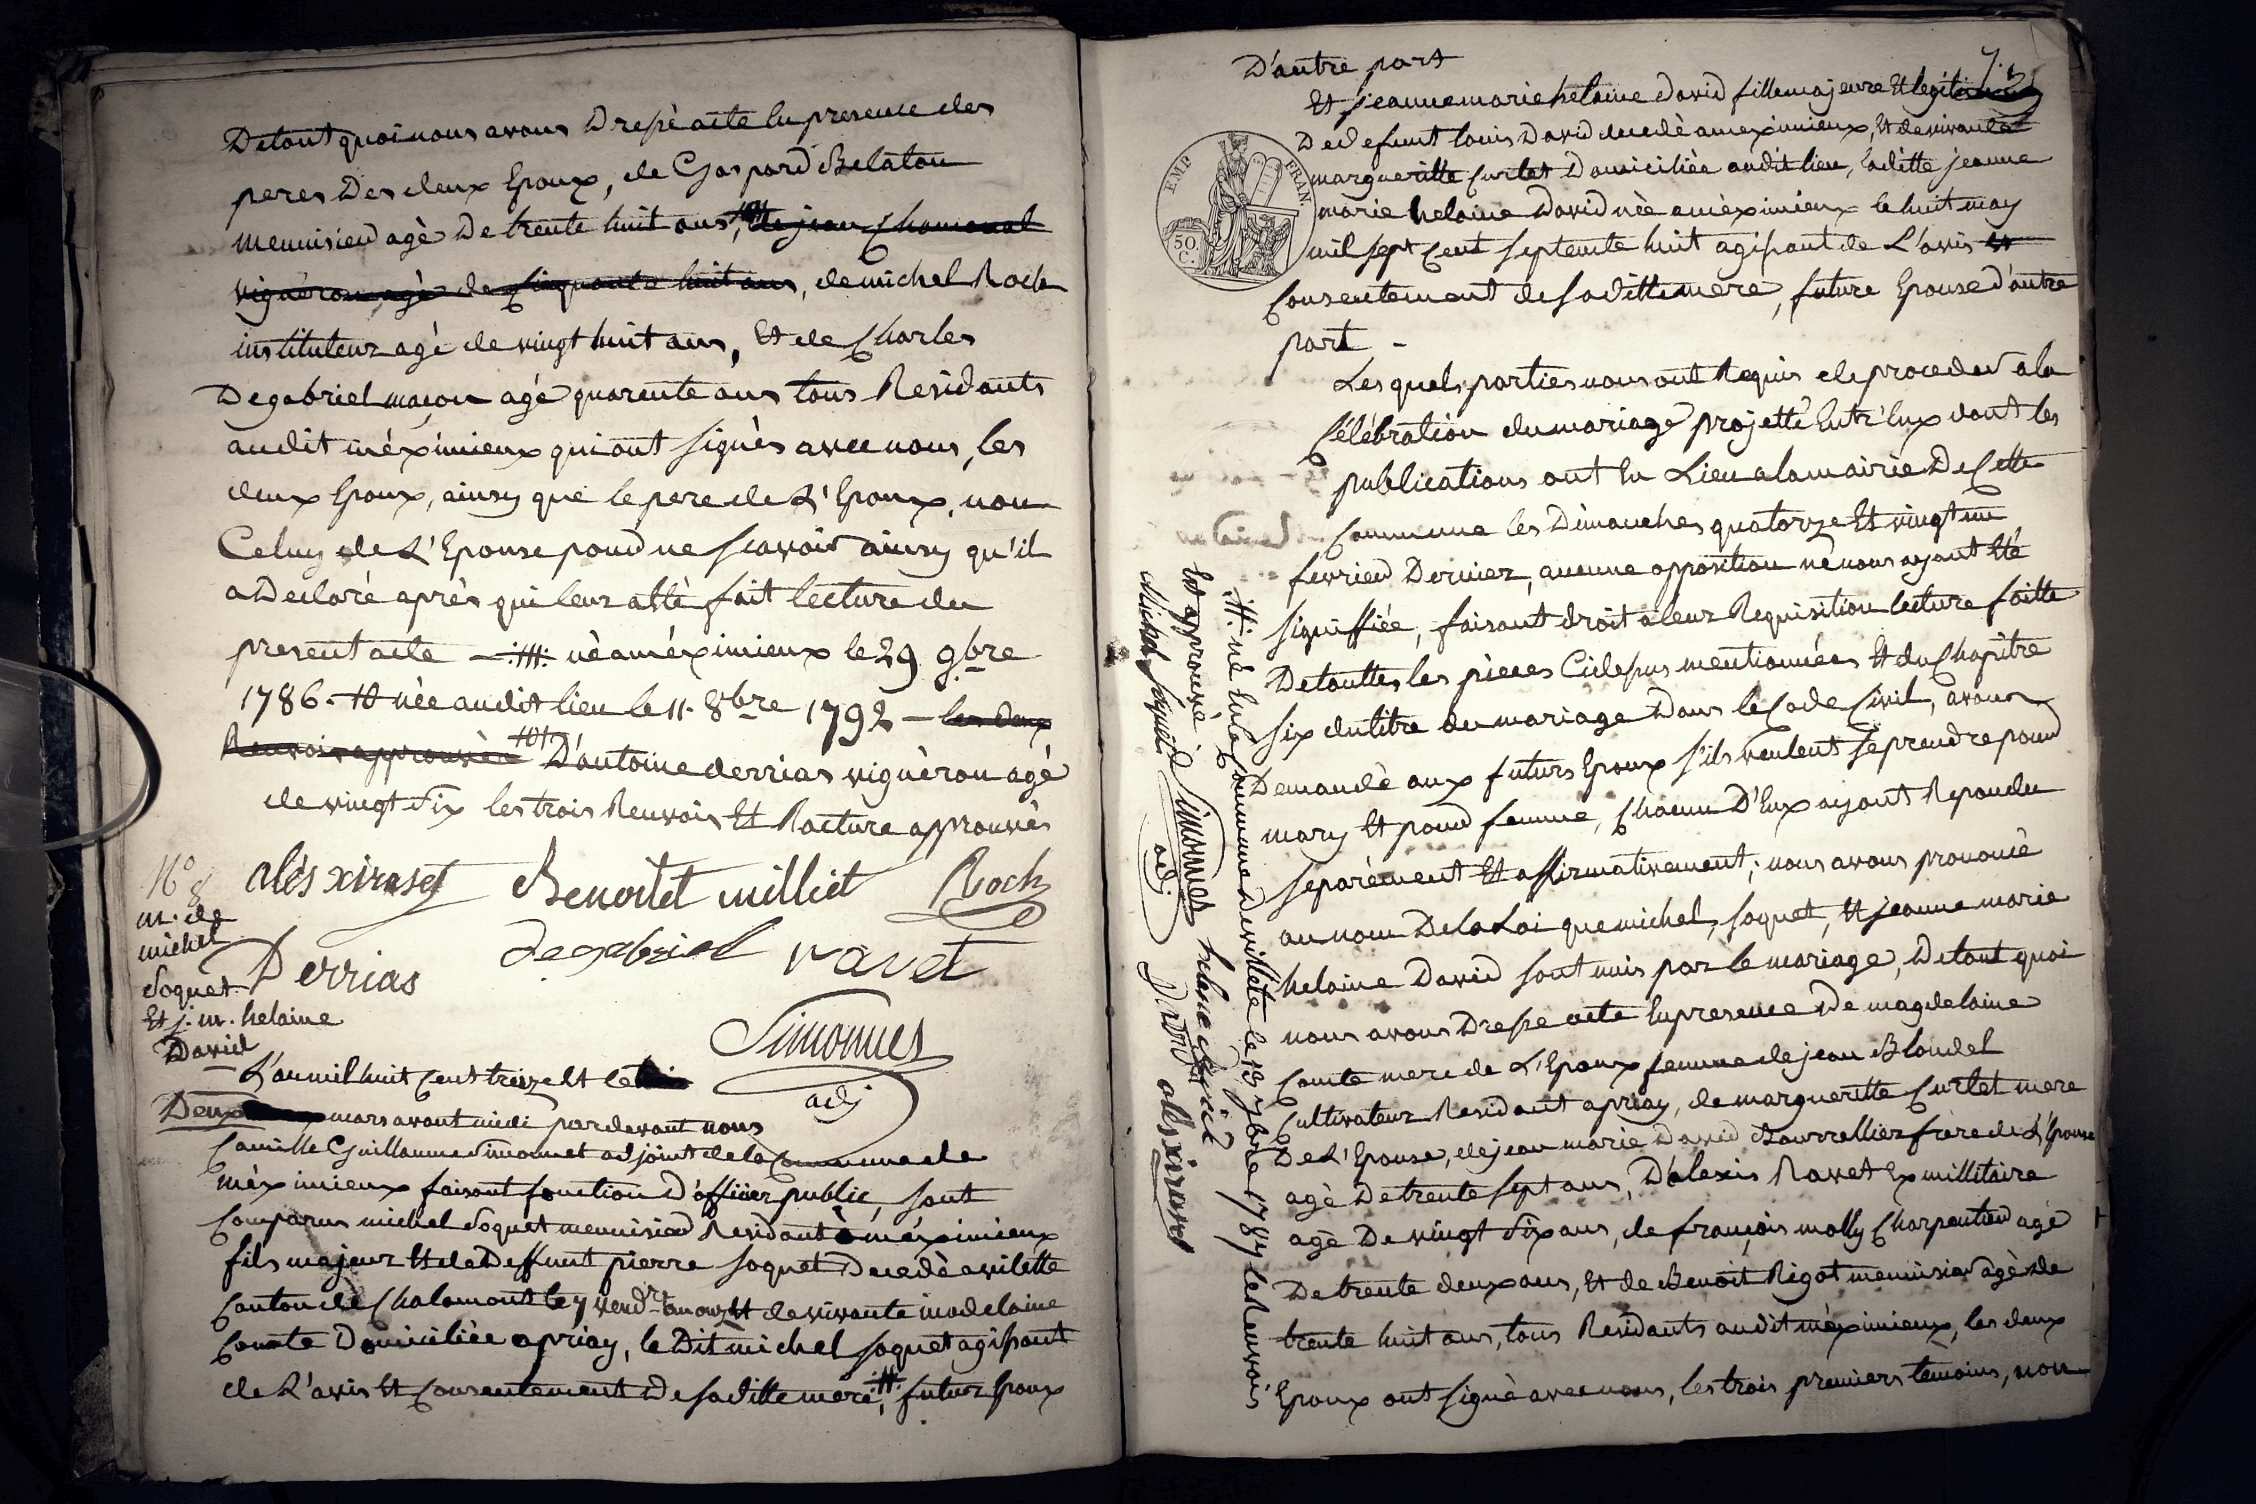 Detout quoi nous avons Dressé acte En presence des
peres Des deux Epoux, de Gaspard Belaton
menuisier agè De trente huit ans, de jean Chamonal
vignèron agè de Cinquante huit ans, de michel Roch
instituteur agè de vingt huit ans, Et de Charles
Degabriel maçon agé quarente ans tous Residants
audit méximieux qui ont signès avec nous, les
deux Epoux, ainsy que le pere de L'Epoux, non
Celuy de L'Epouse pour ne scavoir ainsy qu'il
a Declaré après qui leur a Etè fait lecture du
present acte -:#: nè a méximieux le 29 9bre
1786. # née audit lieu le 11. 8bre 1792 - les deux
Renvois approuvès D'antoine derrias vignèron agé
de vingt six les trois Renvois Et Rature approuvès
alès xiravet Benoitet milliet Roch
Derrias Degabriel ravet
Simonnet
adj
N° 8
m. de
michel
Soquet
Et j. m. helaine
David
L'an mil huit Cent treize Et le
Deux mars avant midi par devant nous
Camille Guillaume Simonnet adjoint de la Commune de
mèximieux faisant fonction D'officier public, sont
Comparus michel Soquet menuisier Residant à méximieux
fils majeur Et de Deffunt pierre soquet Decedè a vilette
Canton de Chalamont le 7 vendre an onze Et de vivante madelaine
Comte Domiciliée a priay, le Dit michel soquet agissant
de L'avis Et Consentement De sa ditte mere :#:, futur Epoux
7.
D'autre part
Et jeanne marie helaine david fille majeure Et legitime
De defunt louis David decedè a meximieux, Et de vivante
margueritte Curlet Domiciliée audit lieu, laditte jeanne
marie helaine David nèe a mèximieux le huit may
mil sept Cent septente huit agissant de L'avis Et
Consentement de sa ditte mère, future Epouse d'autre
part -
EMP. FRAN.
50 C.
Les quels parties nous ont Requis de proceder a la
Célébration du mariage projetté Entr'Eux dont les
publications ont Eu Lieu a la mairie De Cette
Commune les Dimanches quatorze Et vingt un
fevrier Dernier, aucune opposition ne nous ayant Eté
signiffiée, faisant droit a leur Requisition lecture faitte
De touttes les pieces Cidessus mentionnées Et du Chapitre
six du titre du mariage Dans le Code Civil, avons
Demandè aux futurs Epoux s'ils veulent se prendre pour
mary Et pour femme, Chacun D'Eux ayant Repondu
separèment Et affirmativement; nous avons prononcè
au nom De la Loi que michel soquet, Et jeanne marie
helaine David sont unis par le mariage, De tout quoi
nous avons Dressé acte En presence De magdelaine
Comte mere de L'Epoux femme de jean Blondel
Cultivateur Residant a priay, de margueritte Curlet mere
De L'Epouse, de jean marie David Bourrellier frère de L'Epouse
agè De trente sept ans, D'alexis Ravet Ex millitaire
agè De vingt six ans, de françois molly Charpentier agè
De trente deux ans, Et de Benoit Rigot menuisier agè de
trente huit ans, tous Residants audit mèximieux, les deux
Epoux ont signè avec nous, les trois premiers tèmoins, non
:#: né En la Commune De villete le 13 7bre 1787 le Renvois
Est approuvè Simonnet helene david
michel soquet adj David alès xiravet